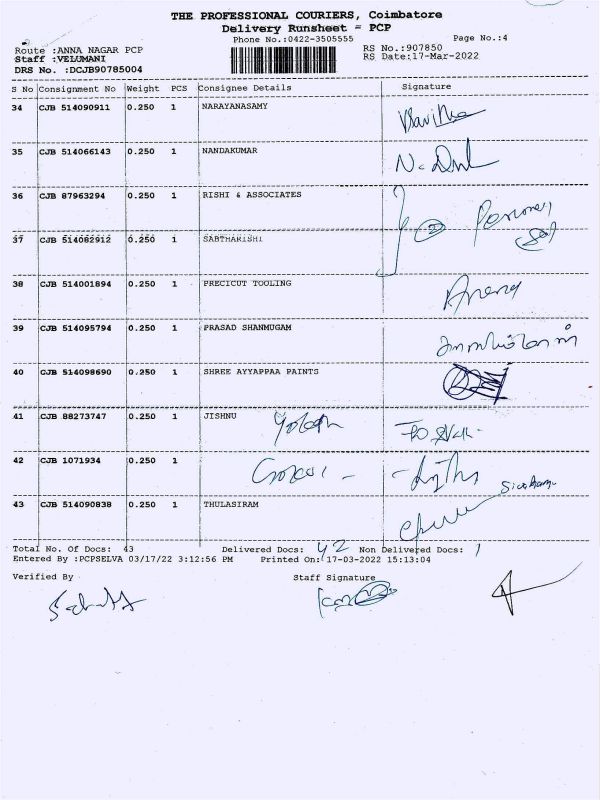 THE PROFESSIONAL COURIERS, Coimbatore
Delivery Runsheet - PCP
Phone No.:0422-3505555
Page No.:4
Route :ANNA NAGAR PCP
RS No.:907850
Staff :VELUMANI
RS Date:17-Mar-2022
DRS No. :DCJB90785004
S No Consignment No Weight PCS Consignee Details Signature
34 CJB 514090911 0.250 1 NARAYANASAMY
35 CJB 514066143 0.250 1 NANDAKUMAR
36 CJB 87963294 0.250 1 RISHI & ASSOCIATES
37 CJB 514082912 0.250 1 SABTHARISHI
38 CJB 514001894 0.250 1 PRECICUT TOOLING
39 CJB 514095794 0.250 1 PRASAD SHANMUGAM
40 CJB 514098690 0.250 1 SHREE AYYAPPAA PAINTS
41 CJB 88273747 0.250 1 JISHNU
42 CJB 1071934 0.250 1
43 CJB 514090838 0.250 1 THULASIRAM
Total No. Of Docs: 43 Delivered Docs: 42 Non Delivered Docs: 1
Entered By :PCPSELVA 03/17/22 3:12:56 PM Printed On: 17-03-2022 15:13:04
Verified By Staff Signature